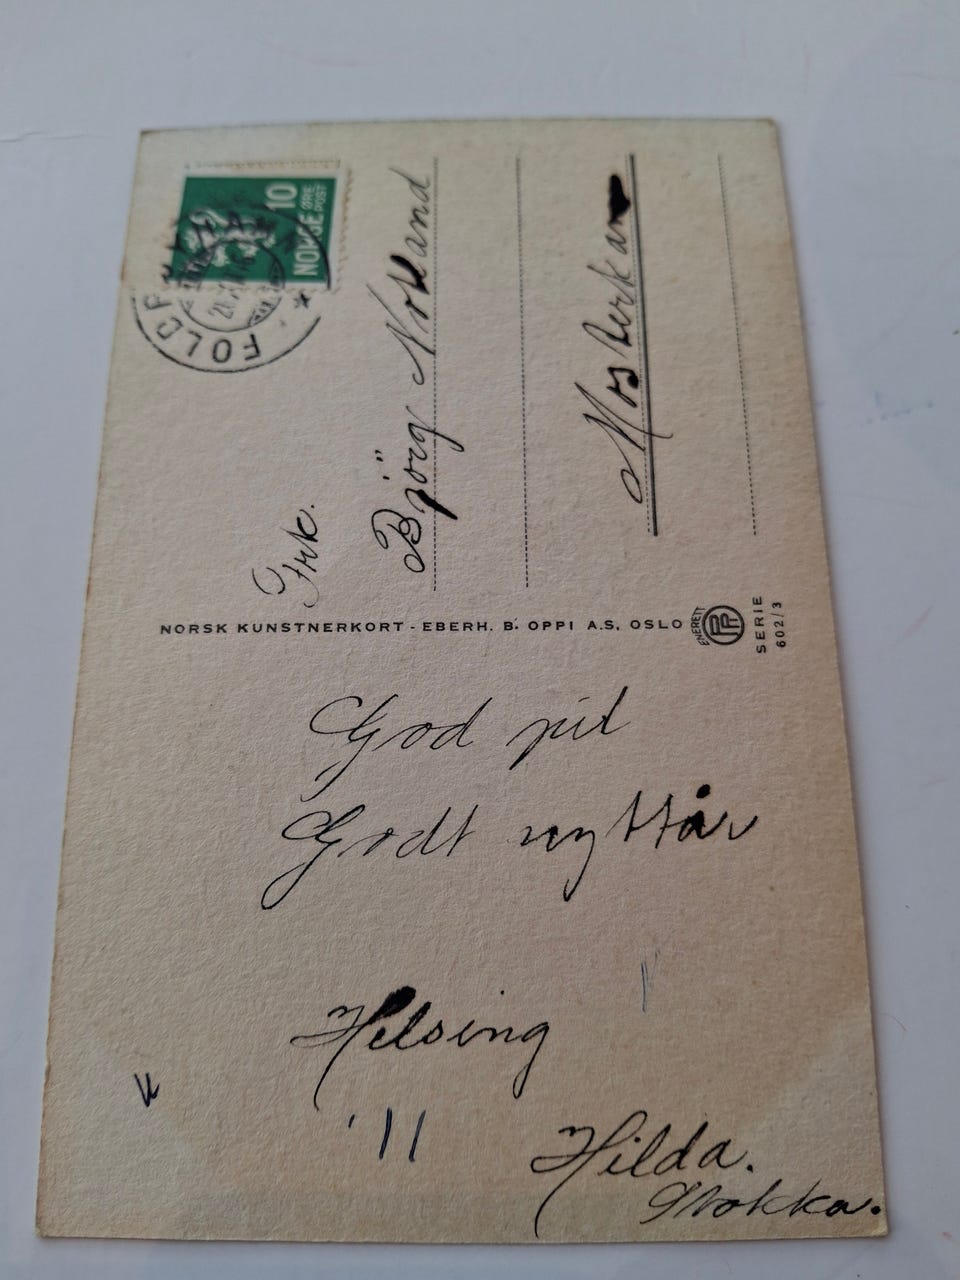 NORGE
10
ØRE
POST
FOLD
Frk.
Björg Notland
Mosterhamn
NORSK KUNSTNERKORT - EBERH. B. OPPI A.S. OSLO
ENERETT
SERIE
602/3
God jul
Godt nyttår
Helsing
Hilda.
Stokka.